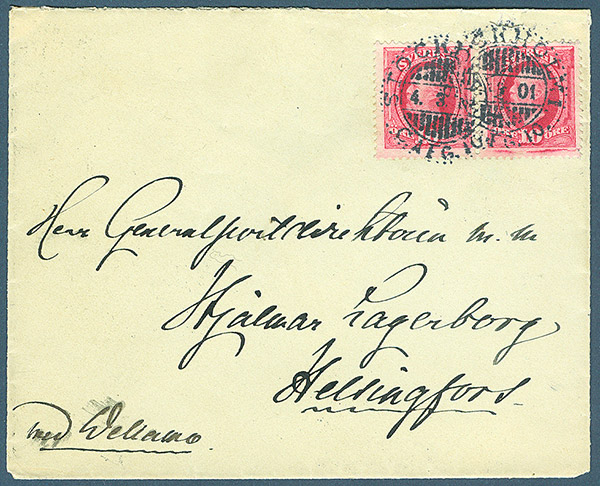 SVERIGE
STOCKHOLM
4. 3. 01
C.AFG. 10
10 ÖRE
Herr Generalpostdirektören m. m
Hjalmar Lagerborg
Helsingfors.
med Wellamo.